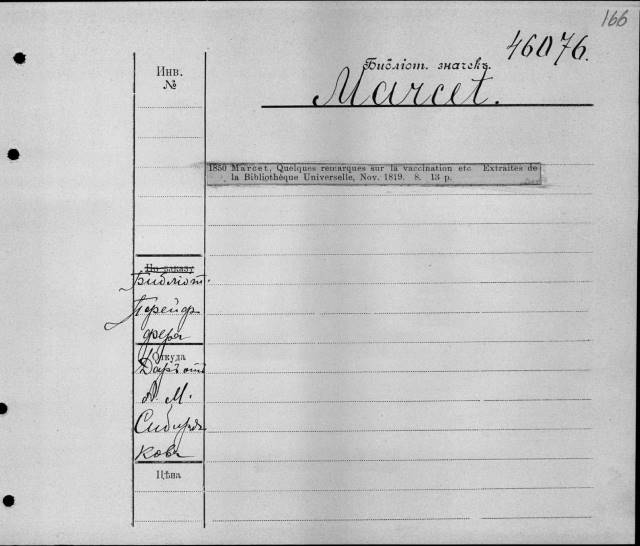 166
46076.
Библіот. значекъ.
Marcet.
Инв.
№
1850 Marcet, Quelques remarques sur la vaccination etc. Extraites de
la Bibliothèque Universelle, Nov. 1819. 8. 13 p.
По заказу
Библіот.
Пфейф
фера
Откуда
Даръ отъ
М.
Сибиря
кова
Цѣна